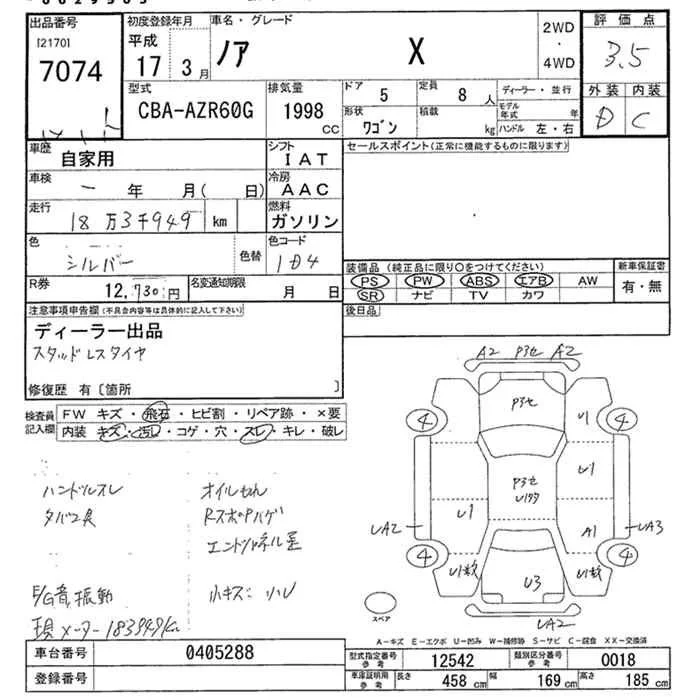 出品番号
[2170]
7074
初度登録年月
平成
17 3月
車名・グレード
ノア X
2WD
・
4WD
評価点
3.5
外装 内装
D C
型式
CBA-AZR60G
排気量
1998
CC
ドア
5
定員
8 人
形状
ワゴン
積載
kg
ディーラー・並行
モデル年式 年
ハンドル 左・右
車歴
自家用
シフト
IAT
車検
ー 年 月( 日)
冷房
AAC
走行
18万3千949 km
燃料
ガソリン
色
シルバー
色替
色コード
1D4
R券
12,730円
名変通知期限
月 日
セールスポイント(正常に機能するものに限ります)
装備品 (純正品に限り○をつけてください)
PS PW ABS エアB AW
SR ナビ TV カワ
新車保証書
有・無
後日品
注意事項申告欄(不具合内容等は具体的に記入して下さい)
ディーラー出品
スタッドレスタイヤ
修復歴 有〔箇所 〕
検査員記入欄
FW キズ・飛石・ヒビ割・リペア跡・×要
内装 キズ・汚れ・コゲ・穴・スレ・キレ・破レ
ハンドルスレ
タバコ臭
オイルもれ
RスポPハゲ
E/G音、振動
小キズ、凹
現メーター183949km
A2 P3セ A2
P3セ
4
4
U1
P3セ
U1
U1
UA2
A1
UA3
4
4
U1数
U3
U1数
UA2
スペア
A-キズ E-エクボ U-凹み W-補修跡 S-サビ C-腐食 XX-交換済
車台番号
0405288
登録番号
型式指定番号
参考
12542
類別区分番号
参考
0018
車庫証明用
参考
長さ
458 cm
幅
169 cm
高さ
185 cm